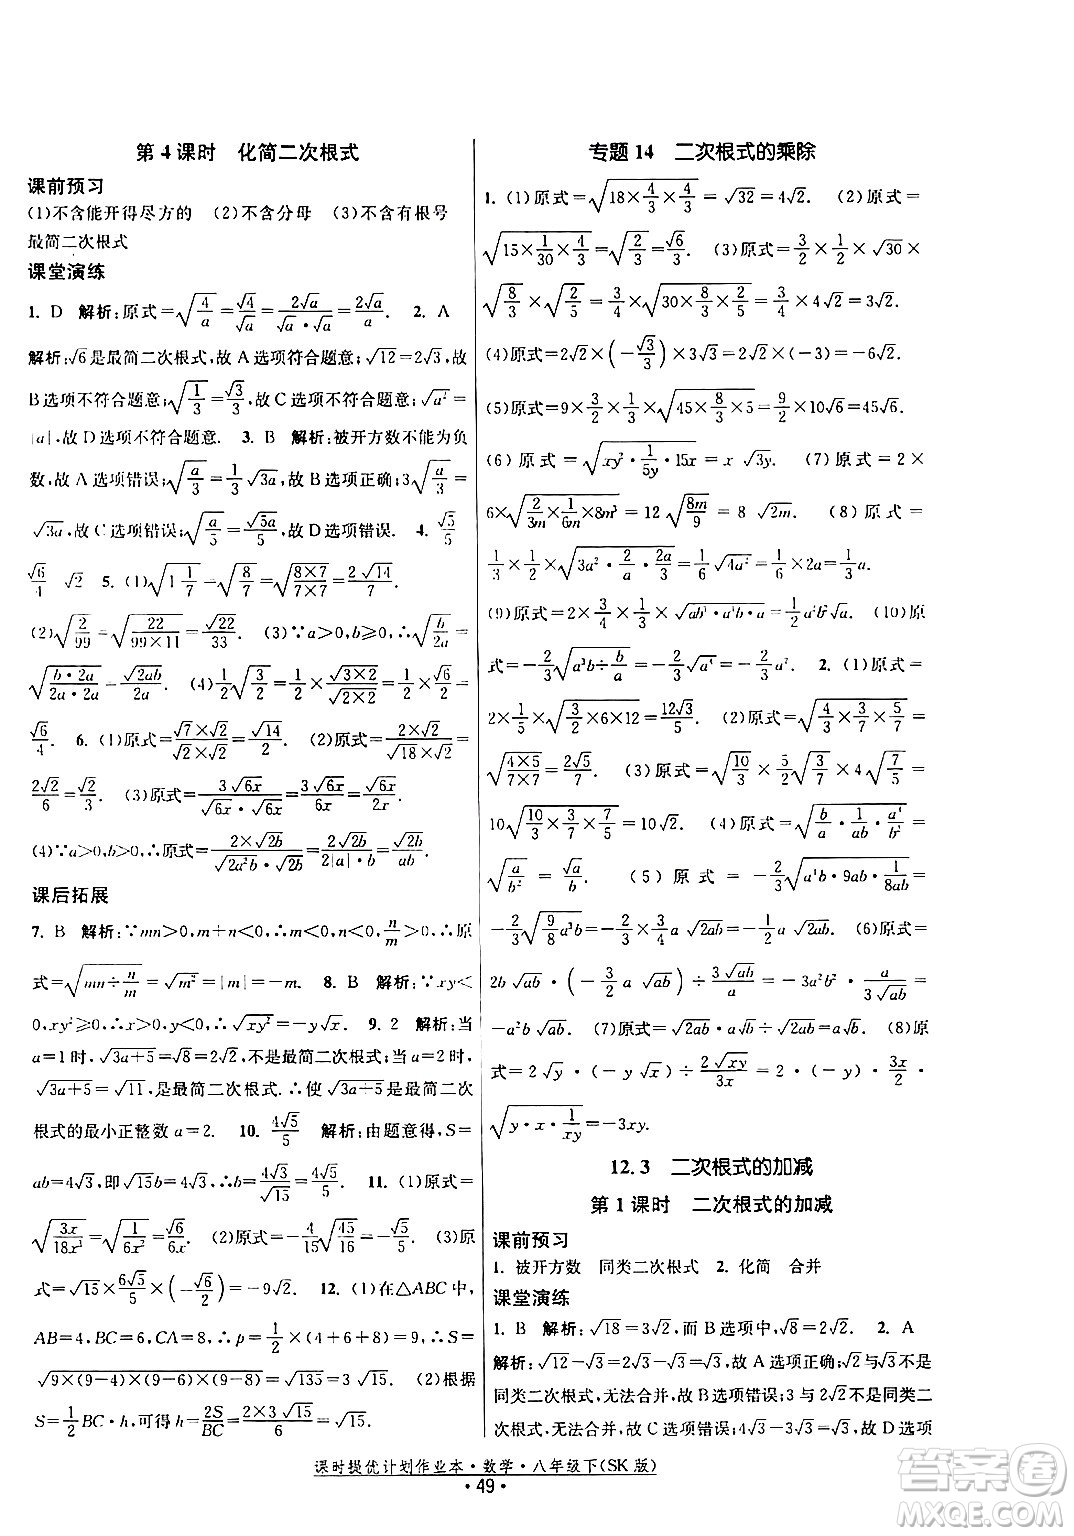 第 4 课时　化简二次根式
课前预习
(1)不含能开得尽方的　(2)不含分母　(3)不含有根号
最简二次根式
课堂演练
1. D　解析:原式=√(4/a)=√4/√a=2√a/(√a·√a)=2√a/a.　2. A
解析:√6是最简二次根式,故 A 选项符合题意;√12=2√3,故
B 选项不符合题意;√(1/3)=√3/3,故 C 选项不符合题意;√(a²)=
|a|,故 D 选项不符合题意.　3. B　解析:被开方数不能为负
数,故 A 选项错误;√(a/3)=(1/3)√(3a),故 B 选项正确;3√(a/3)
=√(3a),故 C 选项错误;√(a/5)=√(5a)/5,故 D 选项错误.　4. √5/5
√6/4　√2　5. (1)√(1 1/7)=√(8/7)=√((8×7)/(7×7))=2√14/7.
(2)√(2/99)=√(22/(99×11))=√22/33.　(3)∵a>0,b≥0,∴√(b/2a)=
√((b·2a)/(2a·2a))=√(2ab)/2a.　(4)(1/2)√(3/2)=(1/2)×√(3×2)/√(2×2)=
√6/4.　6. (1)原式=(√7×√2)/(√2×√2)=√14/2.　(2)原式=(2×√2)/(√18×√2)=
2√2/6=√2/3.　(3)原式=3√(6x)/(√(6x)·√(6x))=3√(6x)/6x=√(6x)/2x.
(4)∵a>0,b>0,∴原式=(2×√(2b))/(√(2a²b)·√(2b))=2√(2b)/(2|a|·b)=√(2b)/ab.
课后拓展
7. B　解析:∵mn>0,m+n<0,∴m<0,n<0,n/m>0,∴原
式=√(mn÷n/m)=√(m²)=|m|=-m.　8. B　解析:∵xy<
0,xy²≥0,∴x>0,y<0,∴√(xy²)=-y√x.　9. 2　解析:当
a=1时,√(3a+5)=√8=2√2,不是最简二次根式;当 a=2时,
√(3a+5)=√11,是最简二次根式.∴使√(3a+5)是最简二次
根式的最小正整数 a=2.　10. 4√5/5　解析:由题意,得 S=
ab=4√3,即√15b=4√3,∴b=4√3/√15=4√5/5.　11. (1)原式=
√(3x/18x³)=√(1/6x²)=√6/6x.　(2)原式=-(4/15)√(45/16)=-√5/5.　(3)原
式=√15×(6√5/5)×(-√6/2)=-9√2.　12. (1)在△ABC 中,
AB=4,BC=6,CA=8,∴p=(1/2)×(4+6+8)=9,∴S=
√(9×(9-4)×(9-6)×(9-8))=√135=3√15.　(2)根据
S=(1/2)BC·h,可得 h=2S/BC=(2×3√15)/6=√15.
专题 14　二次根式的乘除
1. (1)原式=√(18×4/3×4/3)=√32=4√2.　(2)原式=
√(15×1/30×4/3)=√(2/3)=√6/3.　(3)原式=3/2×1/2×√30×
√(8/3)×√(2/5)=3/4×√(30×8/3×2/5)=3/4×4√2=3√2.
(4)原式=2√2×(-√3/3)×3√3=-2√2×3=-6√2.
(5)原式=9×1/3×1/2×√(45×8/3×5)=9×1/2×10√6=45√6.
(6)原式=√(xy²·1/5y·15x)=x√(3y).　(7)原式=2×
6×√(2/3m×1/6m×8m³)=12√(8m/9)=8√(2m).　(8)原式=
1/3×1/2×√(3a²·2/a·2a/3)=1/6√(4a²)=1/6×2a=1/3a.
(9)原式=2×3/4×1/3×√(ab³·a³b·a)=1/2a²b²√a.　(10)原
式=-2/3√(a³b÷b/a)=-2/3√(a⁴)=-2/3a².　2. (1)原式=
2×1/5×√(3/2×6×12)=12√3/5.　(2)原式=√(4/3×3/7×5/7)=
√((4×5)/(7×7))=2√5/7.　(3)原式=√(10/3)×√(3/7)×10√(7/5)=
10√(10/3×3/7×7/5)=10√2.　(4)原式=√(b/a·1/ab·a³/b²)=
√(a/b²)=√a/b.　(5)原式=-2/3√(a³b·9ab·1/8ab)=
-2/3√(9/8a³b)=-2/3·3/4a√(2ab)=-1/2a√(2ab).　(6)原式=
2b√(ab)·(-3/2a√(ab))÷3√(ab)/a=-3a²b²·a/(3√(ab))=
-a²b√(ab).　(7)原式=√(2a)·b√a÷√2=ab.　(8)原
式=2√y·(-√x)÷2√(xy)/3x=2×(-1)·3x/2·
√(y·x·1/xy)=-3x.
12. 3　二次根式的加减
第 1 课时　二次根式的加减
课前预习
1. 被开方数　同类二次根式　2. 化简　合并
课堂演练
1. B　解析:√18=3√2,而 B 选项中,√8=2√2.　2. A
解析:√12-√3=2√3-√3=√3,故 A 选项正确;√2与√3不是
同类二次根式,无法合并,故 B 选项错误;3 与√2不是同类二
次根式,无法合并,故 C 选项错误;4√3-√3=3√3,故 D 选项
课时提优计划作业本·数学·八年级下(SK 版)
·49·
答案圈
MXQE.COM